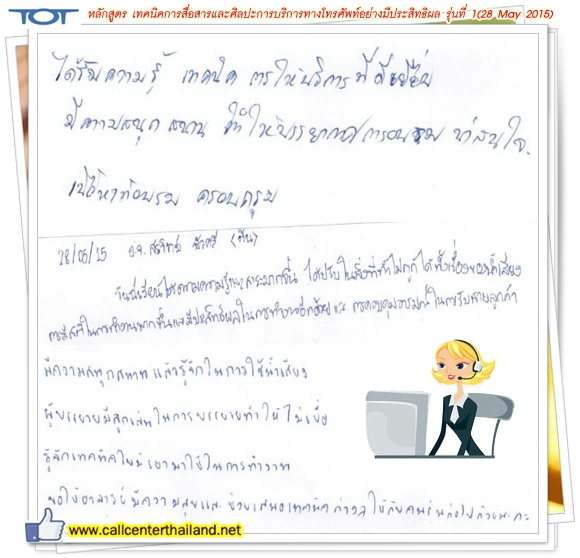 TOT หลักสูตร เทคนิคการสื่อสารและศิลปะการบริการทางโทรศัพท์อย่างมีประสิทธิผล รุ่นที่ 1(28 May 2015)
ได้รับความรู้ เทคนิค การให้บริการที่ดีเยี่ยม
มีความสนุกสนาน ทำให้บรรยากาศการอบรม น่าสนใจ.
เนื้อหาอบรม ครอบคลุม
28/05/15
วันนี้เรียนได้ความรู้และสาระมากขึ้น ได้ปรับในสิ่งที่ทำไม่ถูก ได้ทั้งเรื่องของน้ำเสียง
การมีสติในการทำงานมากขึ้นและมีประสิทธิผลในการทำงานอีกด้วย และ การควบคุมอารมณ์ในการรับสายลูกค้า
มีความสนุกสนาน แล้วรู้จักในการใช้น้ำเสียง
ผู้บรรยายมีลูกเล่นในการบรรยายทำให้ไม่เบื่อ
รู้จักเทคนิคใหม่เอามาใช้ในการทำงาน
ขอให้อาจารย์มีความสุขและช่วยเสนอเทคนิค ให้กับคนรุ่นต่อไปด้วยนะคะ
www.callcenterthailand.net